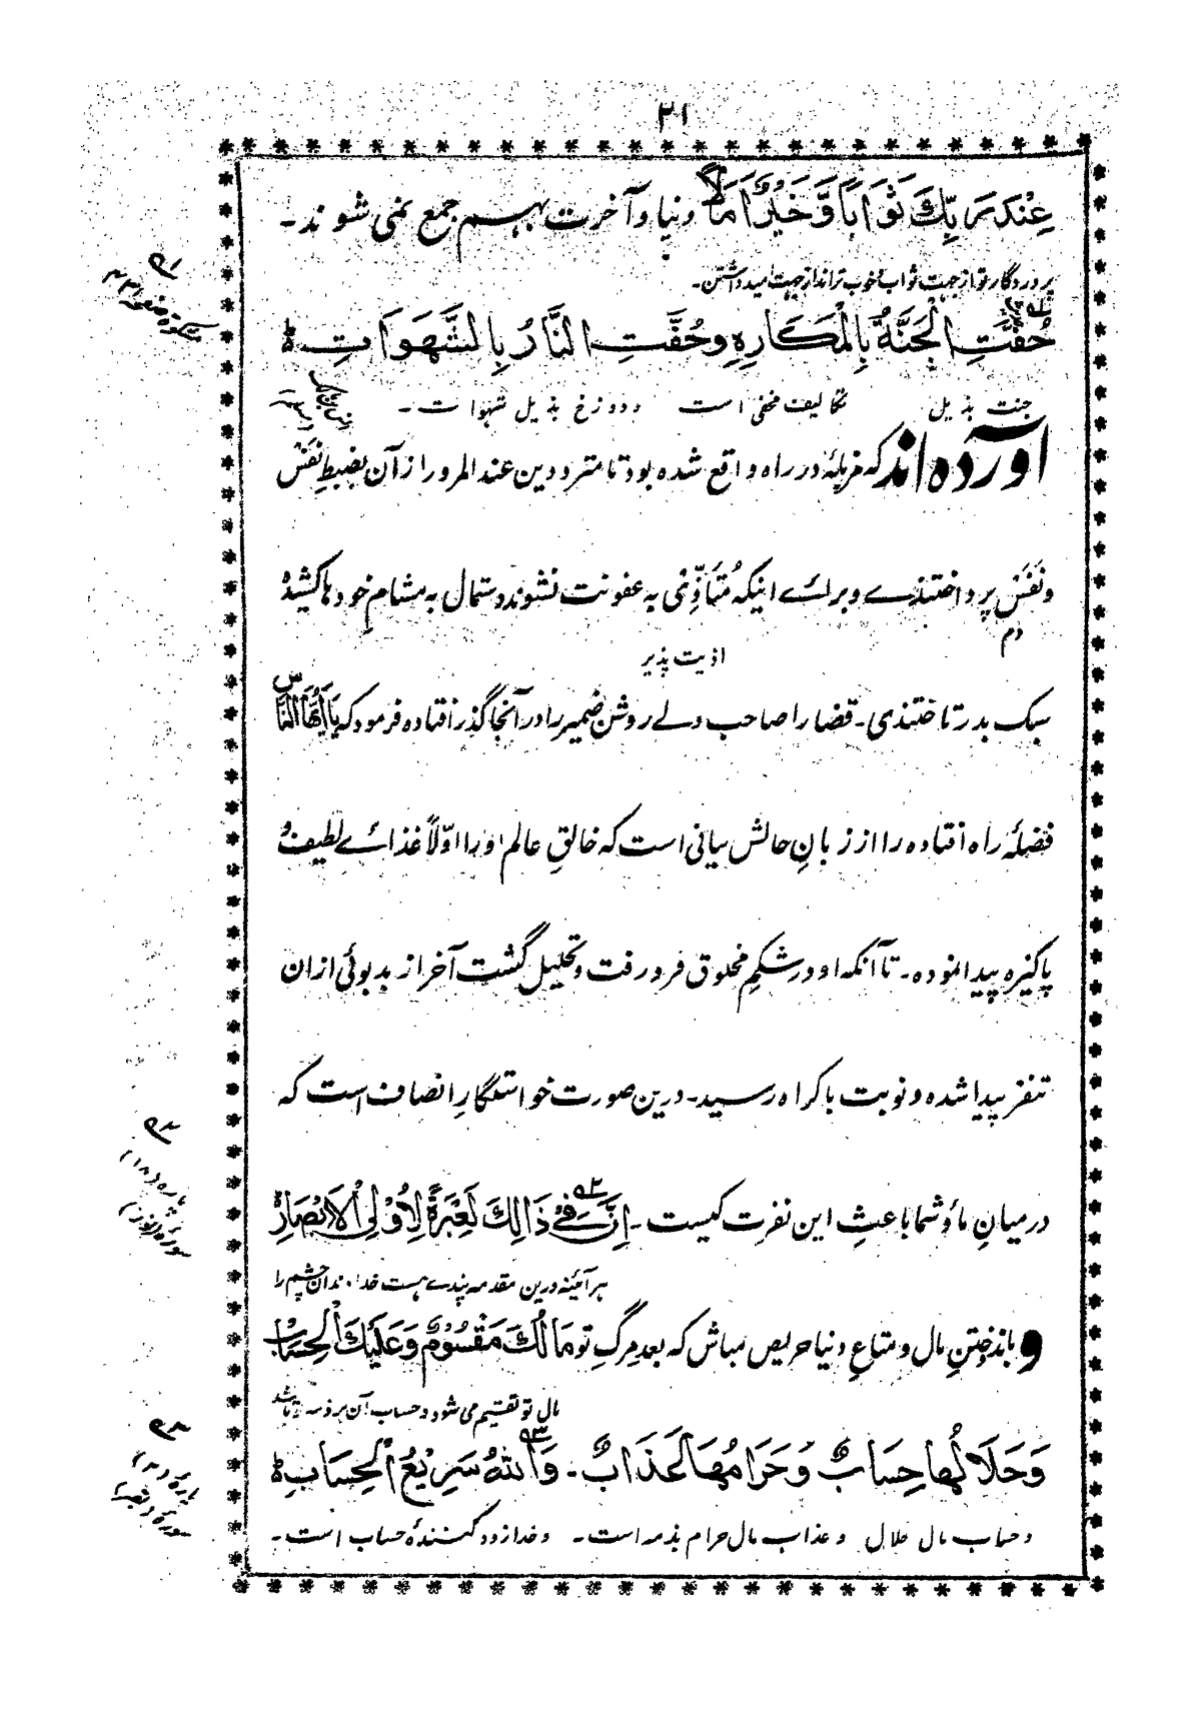 ۳۱
عِنْدَ رَبِّكَ ثَوَابًا وَّخَيْرٌ اَمَلًا دنیا و آخرت بہم جمع نمی شوند۔
پروردگار تو از جہت ثواب خوب تر اند از جہت امید داشتن۔
۵۱
حُفَّتِ الْجَنَّةُ بِالْمَكَارِهِ وَحُفَّتِ النَّارُ بِالشَّهَوَاتِ ؕ
جنت بذیل تکالیف مخفی است و دوزخ بذیل شہوات۔
آوردہ اند کہ مزبلۂ در راہ واقع شدہ بود تا مترددین عند المرور از آن بضبطِ نَفَسْ
و نَفَسْ پرداختندے و برائے اینکہ مُتَأَذِّی بہ عفونت نشوند دستمال بہ مشامِ خودہا کشیدہ
دم
اذیت پذیر
سبک بدر تاختندی۔ قضا را صاحب دلے روشن ضمیر را در آنجا گذر افتادہ فرمود کہ یَا اَیُّهَا النَّاسُ
فضلۂ راہ افتادہ را از زبانِ حالش بیانی است کہ خالقِ عالم او را اوّلاً غذائے لطیف و
پاکیزہ پیدا نمودہ۔ تا آنکہ او در شکمِ مخلوق فرو رفت و تحلیل گشت آخر از بدبوئی ازان
تنفر پیدا شدہ و نوبت باکراہ رسید۔ درین صورت خواستگارِ انصاف است کہ
درمیانِ ما و شما باعثِ این نفرت کیست۔ اِنَّ فِیْ ذَالِكَ لَعِبْرَةً لِاُوْلِی الْاَبْصَارِ ؕ
۵۲
ہر آئینہ درین مقدمہ پندے ہست خداوندان چشم را
و باندوختنِ مال و متاعِ دنیا حریص مباش کہ بعد مرگِ تو مَالُكَ مَقْسُوْمٌ وَعَلَیْكَ الْحِسَابُ
مال تو تقسیم می شود و حساب آن بر ذمہ تو باشد
وَحَلَالُهَا حِسَابٌ وَحَرَامُهَا عَذَابٌ۔ وَاللهُ سَرِيْعُ الْحِسَابِ ؕ
۵۳
و حساب مال حلال و عذاب مال حرام بذمہ است۔ و خدا زود کنندۂ حساب است۔
۵۱
مشکوٰۃ صفحہ
۵۲
پارہ (۱۸)
سورۂ (نور)
۵۳
پارۂ (۲)
سورۂ (بقر)